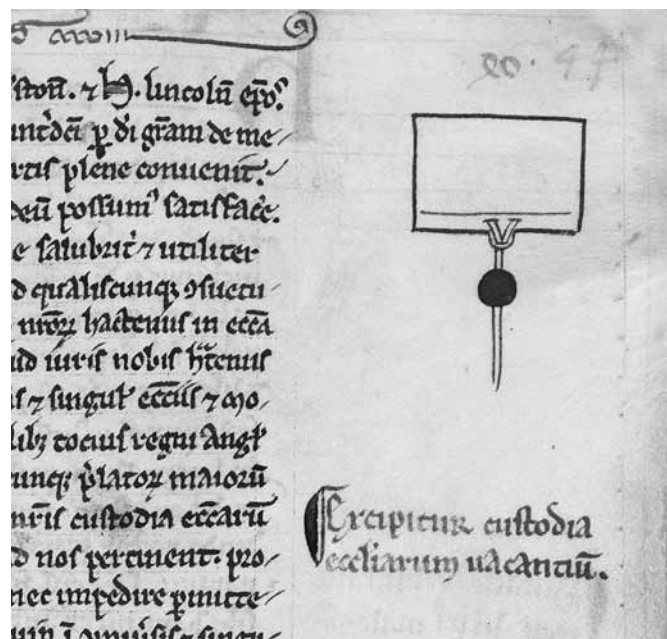 xxxiii
stoñ. ⁊ H. lincolñ ep̄os.
ꝑ dī grām de me-
rtis plene conuenit.
deū possumꝰ satisfac̄e.
e salubrit̄ ⁊ utiliter
d qualiscunqꝫ ꝯsuetu-
nr̄oꝝ hactenus in ecc̄a
ud iuris nobis hc̄tenus
is ⁊ singul' ecc̄iis ⁊ mo-
libꝫ tocius regni Angl'
unqꝫ p̄latoꝝ maiorū
nr̄is custodia ecc̄arū
d nos pertinent. pro-
nec impedire ꝑmitte-
⁊ singu-
Excipitur custodia
eccliarum uacantiū.